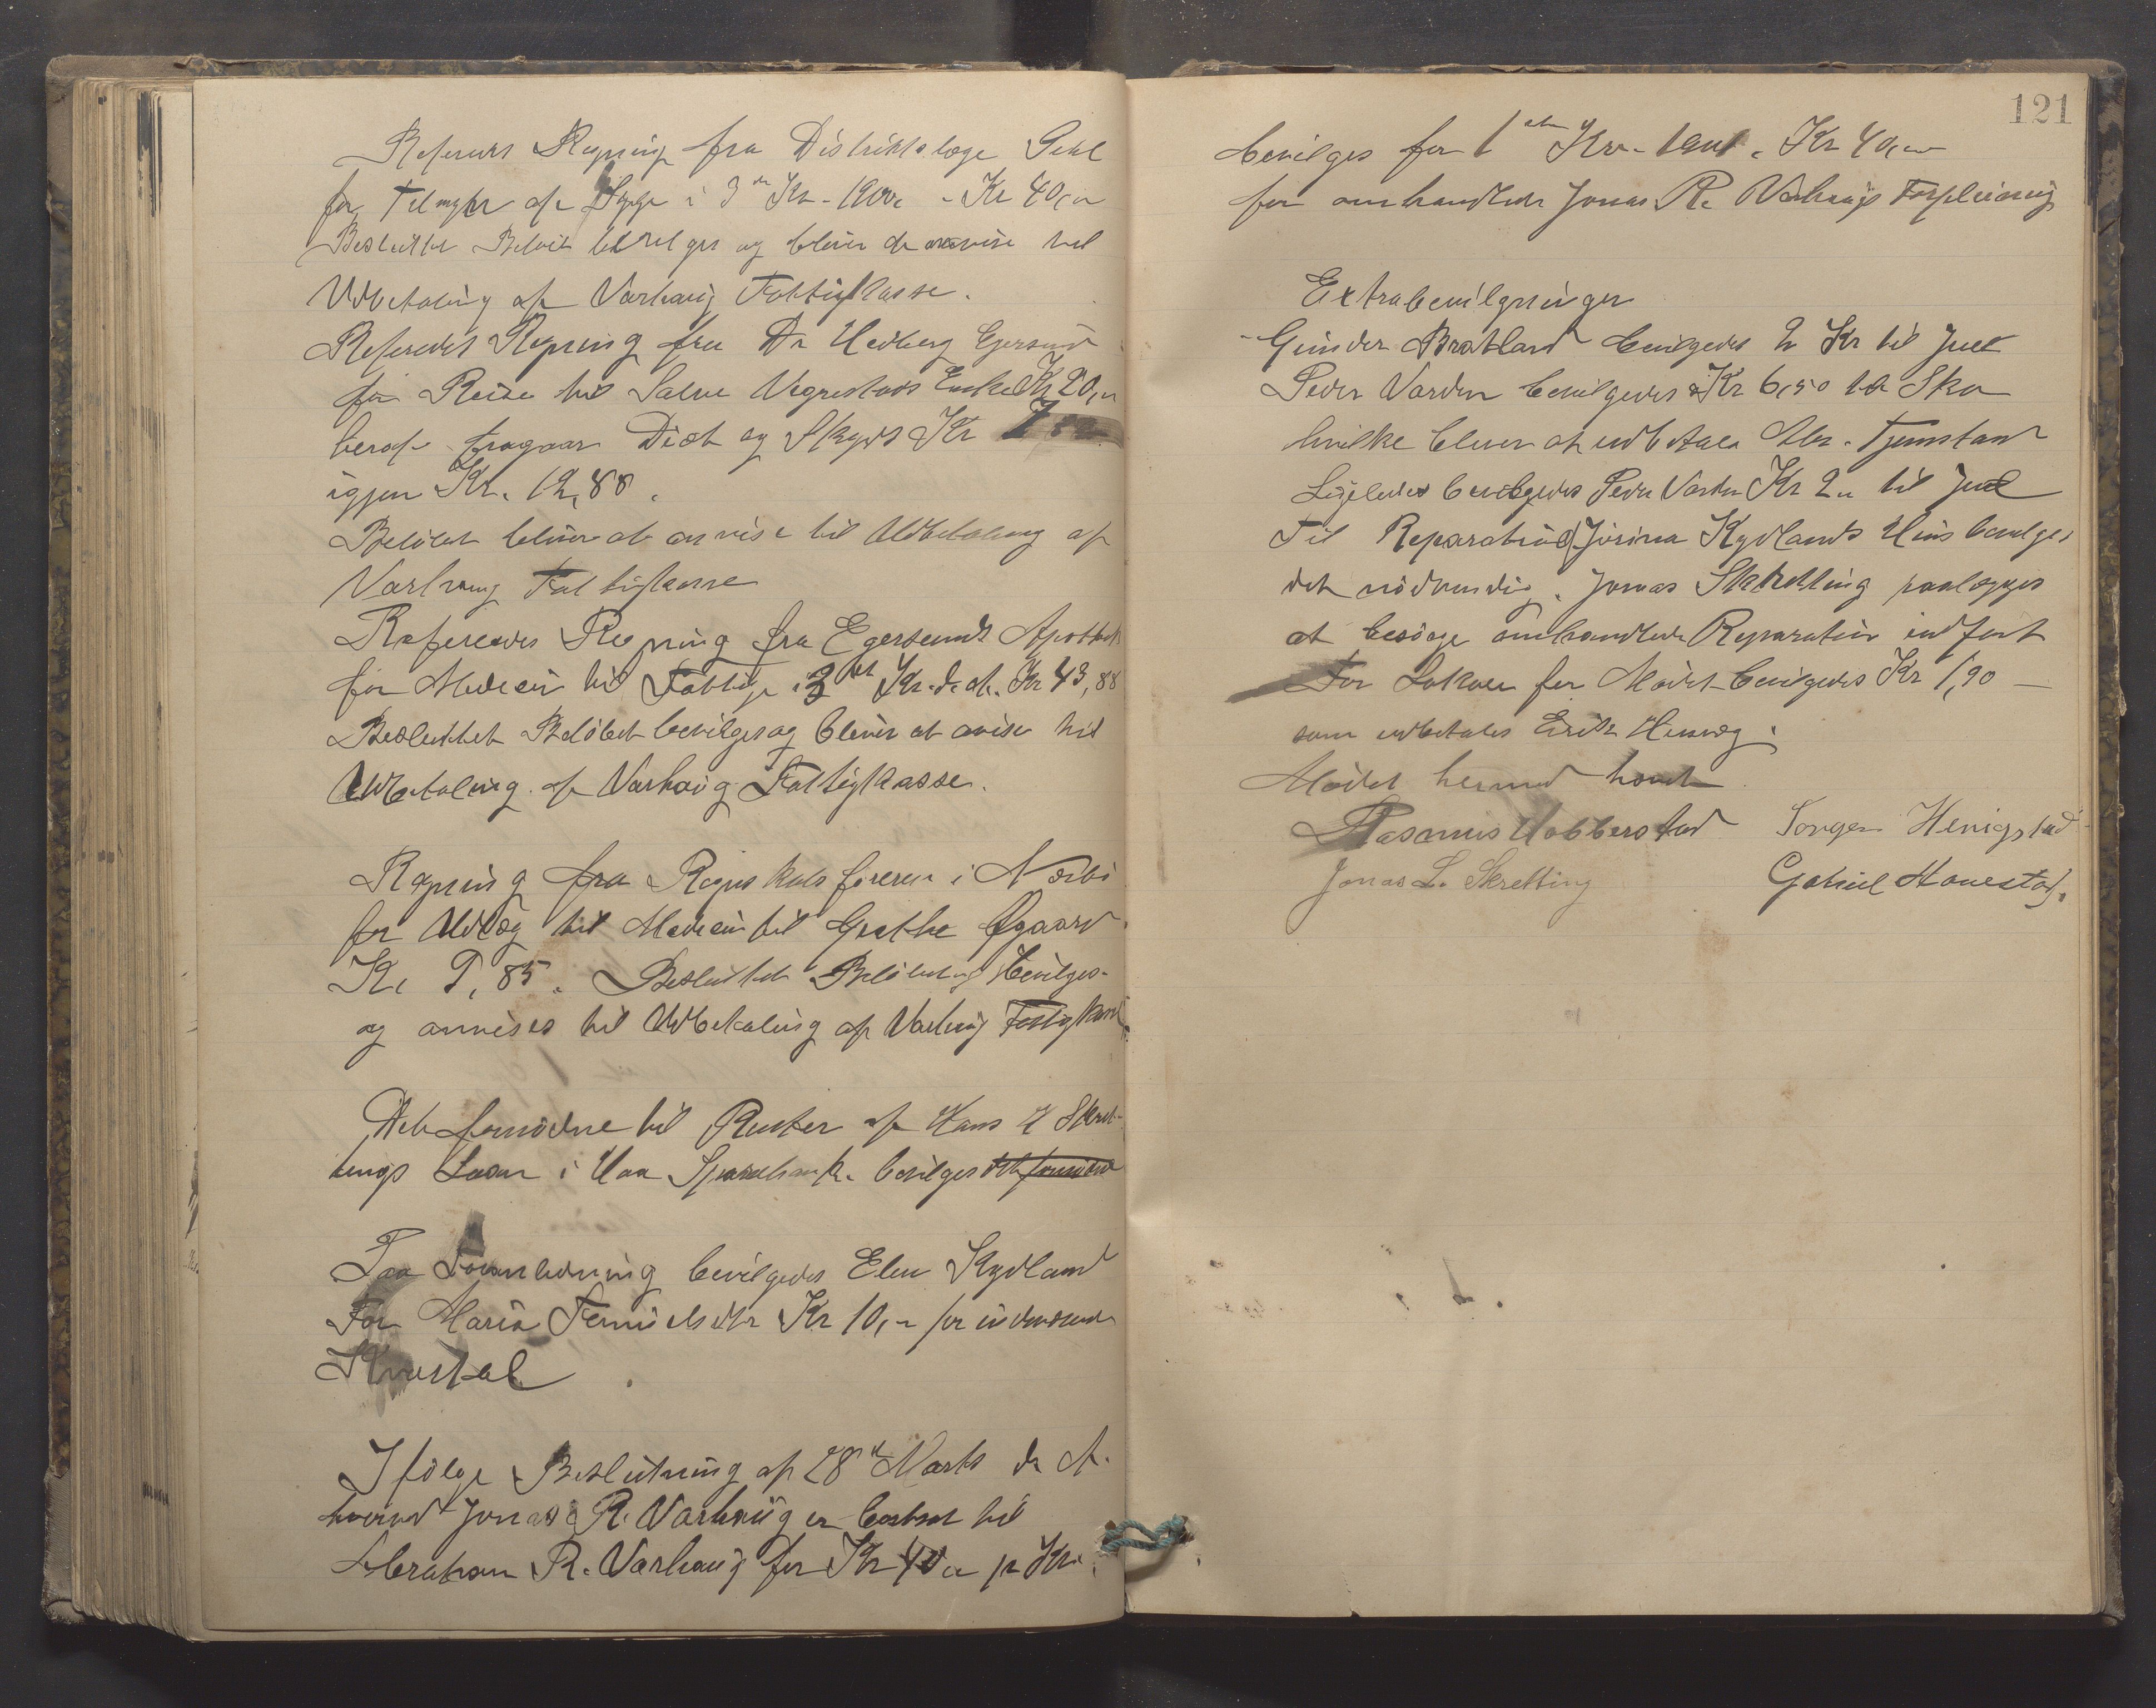 Refereres Regning fra Distriktslæge Sekl
for Tilsyn af Syge i 3die Kv. 1900. - Kr 40,00
Besluttet Beløb bevilges og bliver at anvise til
Udbetaling af Varhaug Fattigkasse.
Refereredes Regning fra Dr Hedberg Egersund
for Reise til Salve Vegrestads Enke Kr 20,00
heraf fragaar Diæt og Skyds Kr
igjen Kr. 12,88.
Beløbet bliver at anvise til Udbetaling af
Varhaug Fattigkasse
Refereredes Regning fra Egersunds Apothek
for Medecin til Fattige i 3die Kv. d. A. Kr 43,88
Besluttet Beløbet bevilges og bliver at anvise til
Udbetaling af Varhaug Fattigkasse.
Regning fra Regnskabsføreren i Nærbø
for Udlæg til Medecin til Grethe Øgaard
Kr 9,85. Besluttet Beløbet bevilges
og anvises til Udbetaling af Varhaug Fattigkasse
Det fornødne til Renter af Hans H Skret-
tings Laan i Haa Sparebank. bevilges det fornødne
Paa Foranledning bevilgedes Elen Kydland
For Maria Tønnesdtr Kr 10,- for indeværende
Kvartal
Ifølge Beslutning af 28de Marts d. A.
hvorved Jonas R. Varhaug er bortsat til
Abraham R. Varhaug for Kr 40,00 pr Kv.
121
bevilges for 1ste Kv. 1901. Kr 40,00
for omhandlede Jonas R. Varhaugs Forpleining
Extrabevilgninger
Gunder Bratland bevilgedes 2 Kr til Jul
Peder Varden bevilgedes Kr 6,50 til Sko
hvilke bliver at udbetale Abr. Tjemsland
Ligeledes bevilgedes Peder Varden Kr 2,- til Jul
Til Reparation Jorina Kydlands Huus bevilges
det nødvendig. Jonas Skretting paalægges
at besørge omhandlede Reparation indført
For Lokale for Mødet bevilgedes Kr 1,90 —
som udbetales Eirik
Mødet hermed hævet
Rasmus Ubberstad Torger Hervigstad
Jonas L. Skretting Gabriel Haugstad.